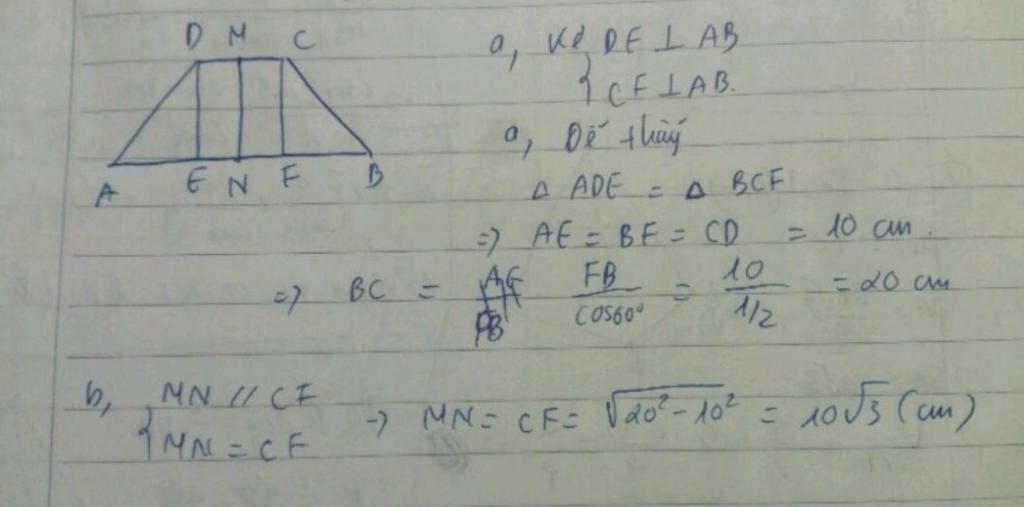 D M C
A E N F B
a, Kẻ { DE ⊥ AB
CF ⊥ AB.
a, Dễ thấy
Δ ADE = Δ BCF
=> AE = BF = CD = 10 cm.
=> BC = FB/cos60° = 10/1/2 = 20 cm
b, { MN // CF
MN = CF → MN = CF = √20² - 10² = 10√3 (cm)